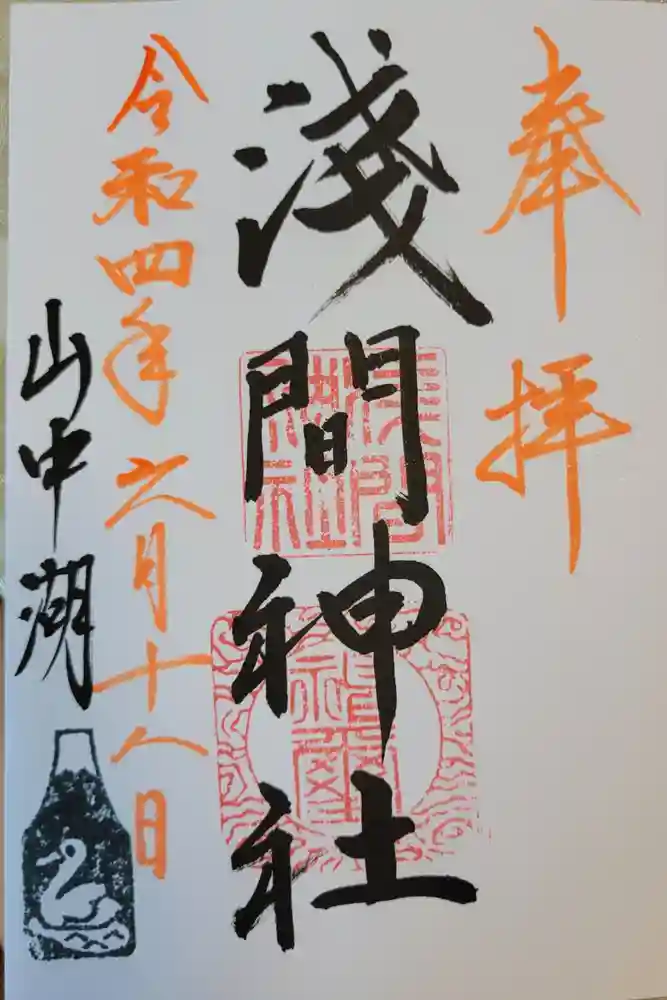 奉拝
淺間神社
令和四年六月十八日
山中湖